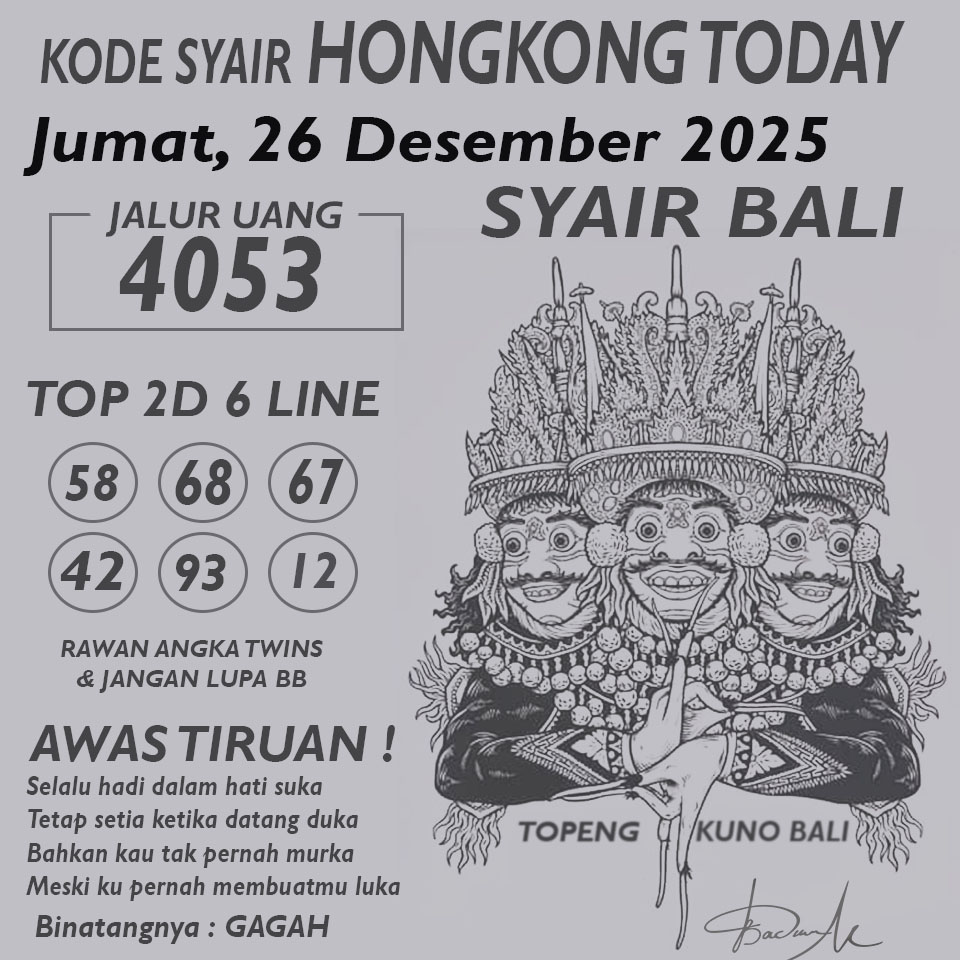 KODE SYAIR HONGKONG TODAY
Jumat, 26 Desember 2025
JALUR UANG
4053
SYAIR BALI
TOP 2D 6 LINE
58 68 67
42 93 12
RAWAN ANGKA TWINS
& JANGAN LUPA BB
AWAS TIRUAN !
Selalu hadi dalam hati suka
Tetap setia ketika datang duka
Bahkan kau tak pernah murka
Meski ku pernah membuatmu luka
Binatangnya : GAGAH
TOPENG KUNO BALI